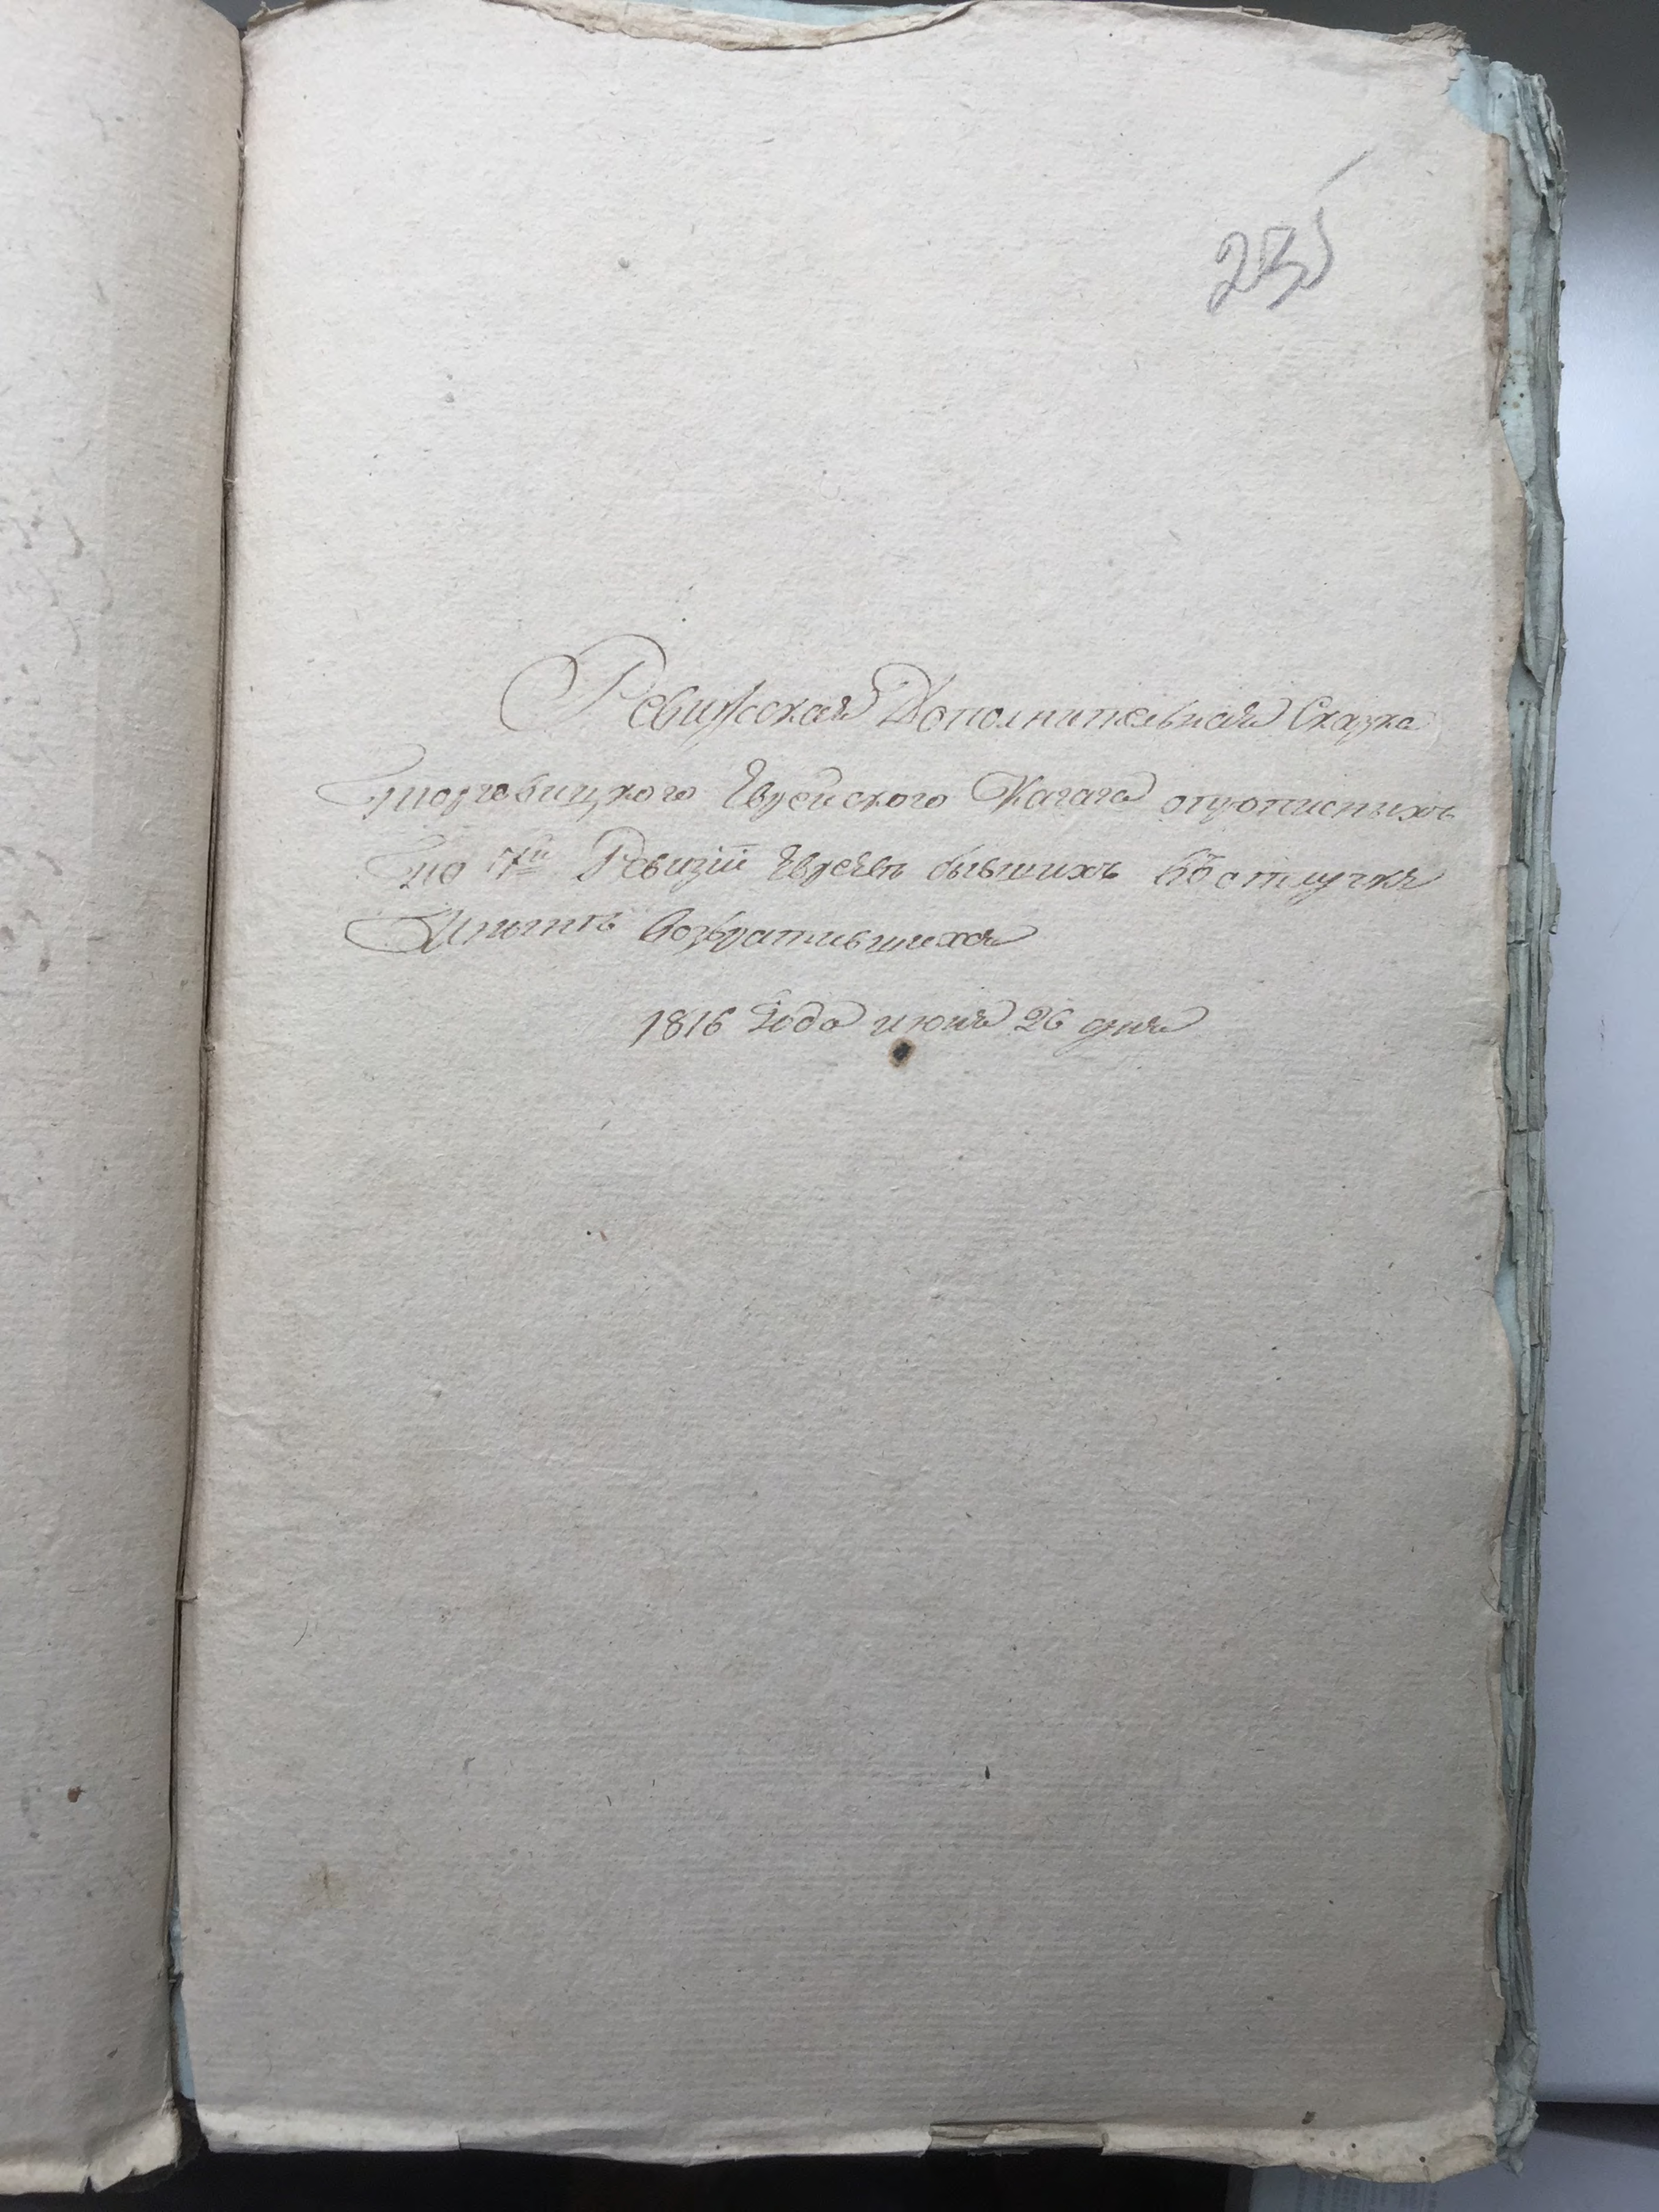 235
Ревизская Дополнительная Сказка
Торговицкого Еврейского Кагала опрописныхъ
по 7й Ревизіи Евреевъ бывшихъ вотлучке
Иныне возвратившихся
1816 Года июня 26 дня